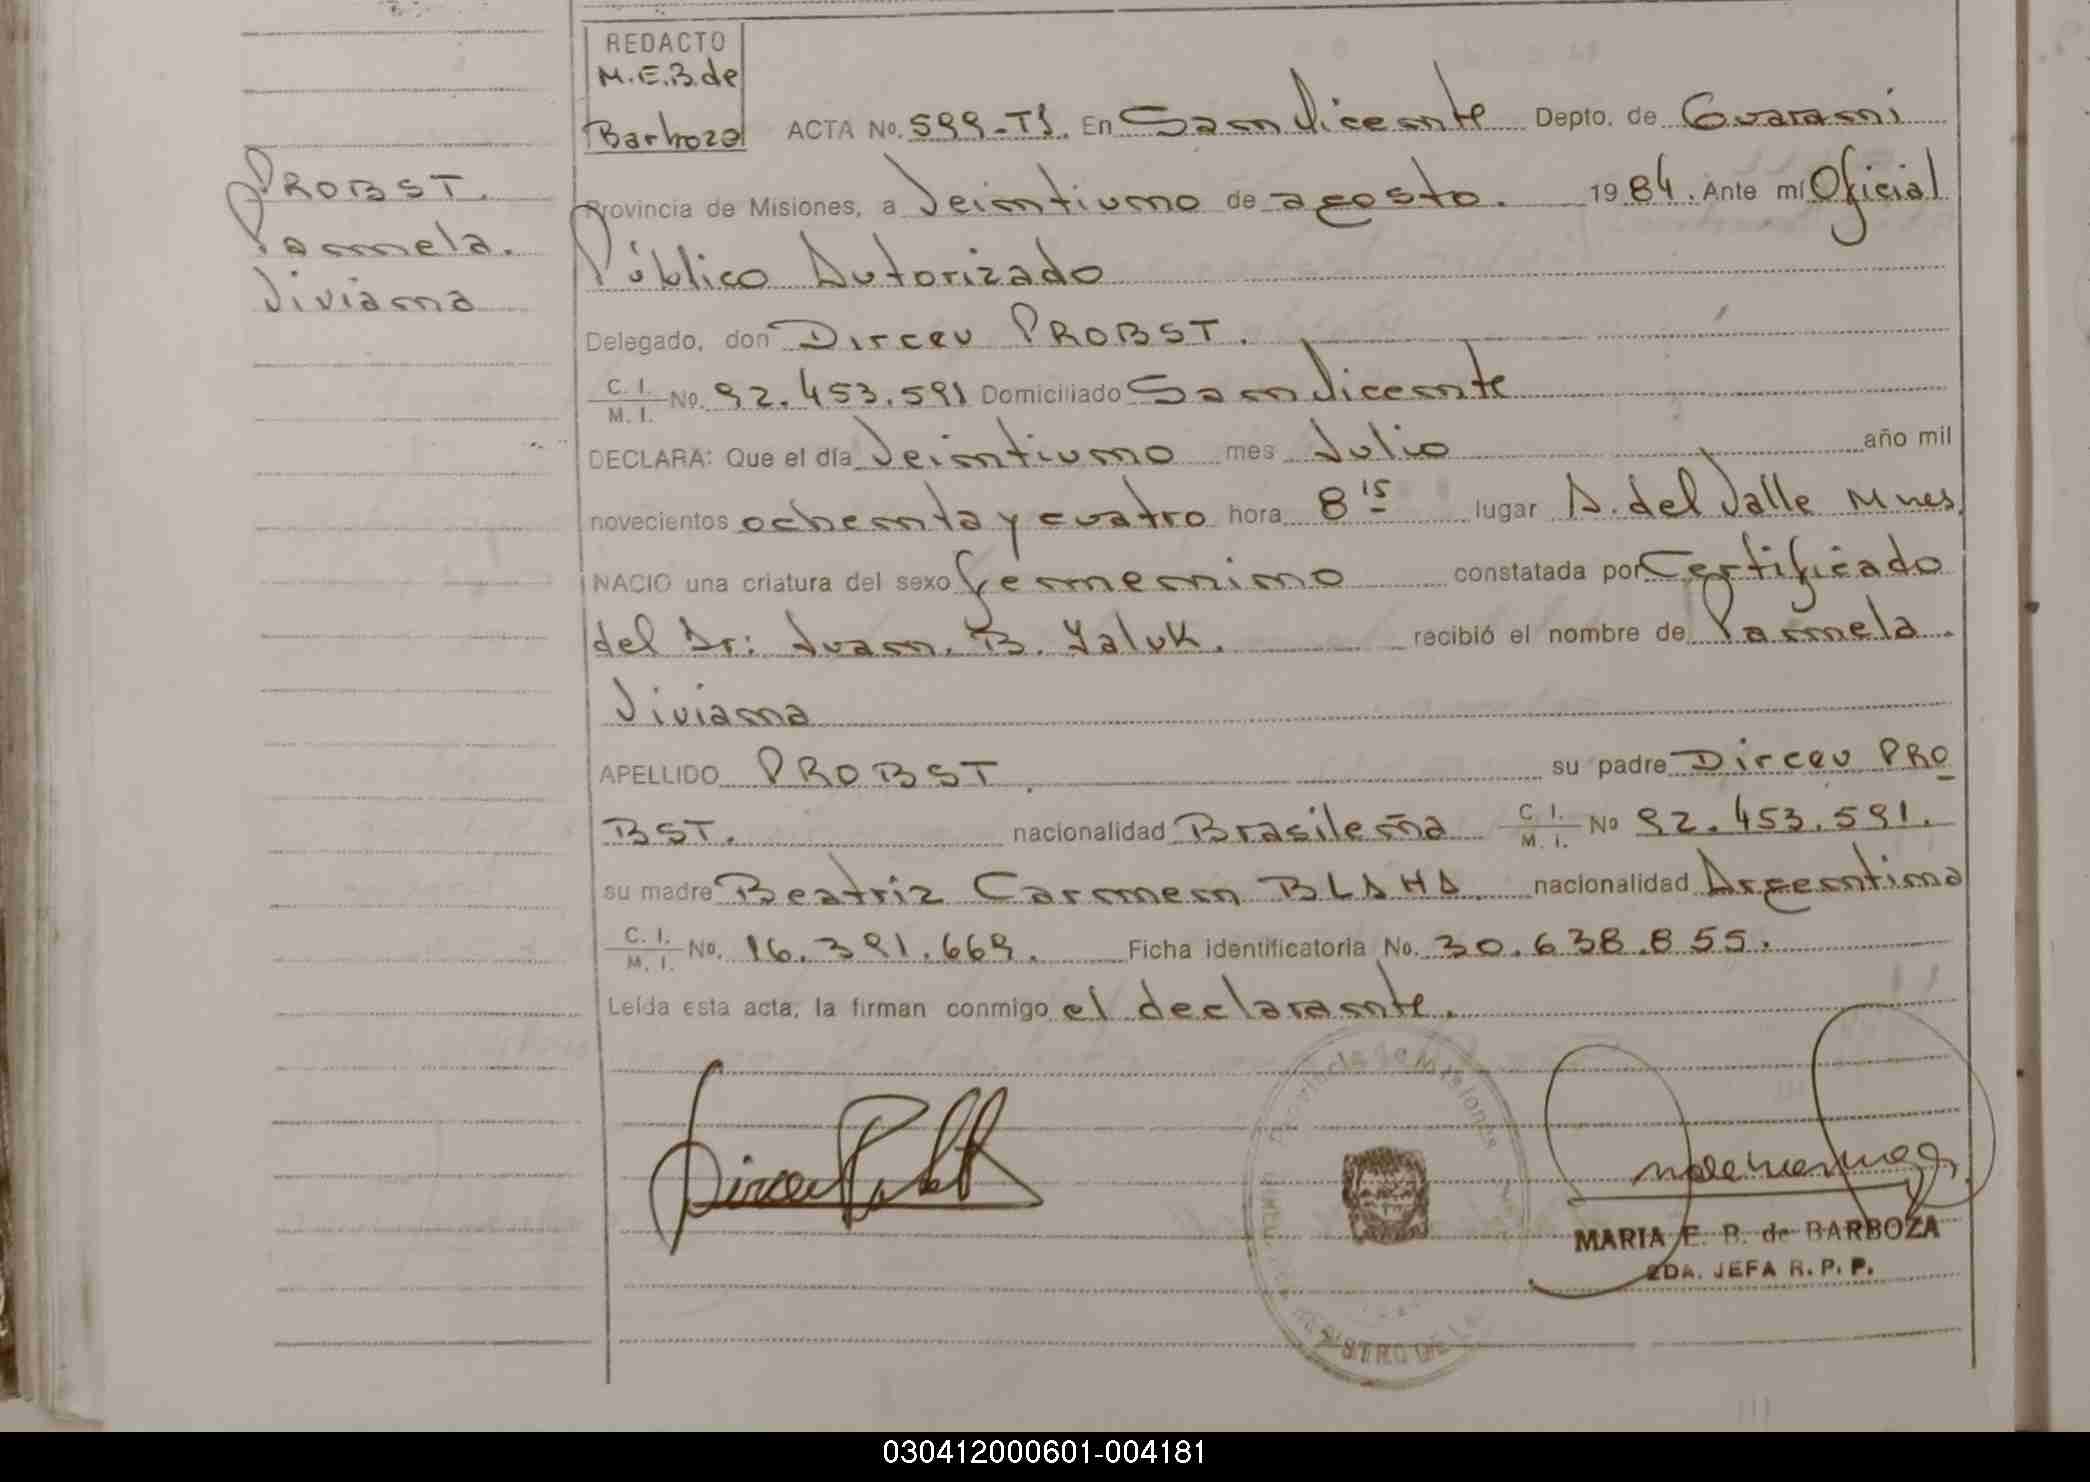 REDACTO
M.E.B. de
Barboza
ACTA No. 599-T1. En San Vicente Depto. de Guarani
PROBST.
Pamela.
Viviana
Provincia de Misiones, a Veintiuno de agosto. 1984. Ante mí Oficial
Público Autorizado
Delegado, don Dirceu PROBST.
C. I.
M. I. No. 92.453.591 Domiciliado San Vicente
DECLARA: Que el día Veintiuno mes Julio año mil
novecientos ochenta y cuatro hora 8 15 lugar A. del Valle Mnes.
NACIO una criatura del sexo femenino constatada por Certificado
del Dr: Juan. B. Yaluk. recibió el nombre de Pamela.
Viviana
APELLIDO PROBST. su padre Dirceu PRO
BST. nacionalidad Brasileña C. I. M. I. No 92.453.591.
su madre Beatriz Carmen BLAHA nacionalidad Argentina
C. I.
M. I. No. 16.391.669. Ficha identificatoria No. 30.638.855.
Leída esta acta, la firman conmigo el declarante.
Provincia de Misiones
REGISTRO DE LA
MARIA E. B. de BARBOZA
2DA. JEFA R. P. P.
030412000601-004181